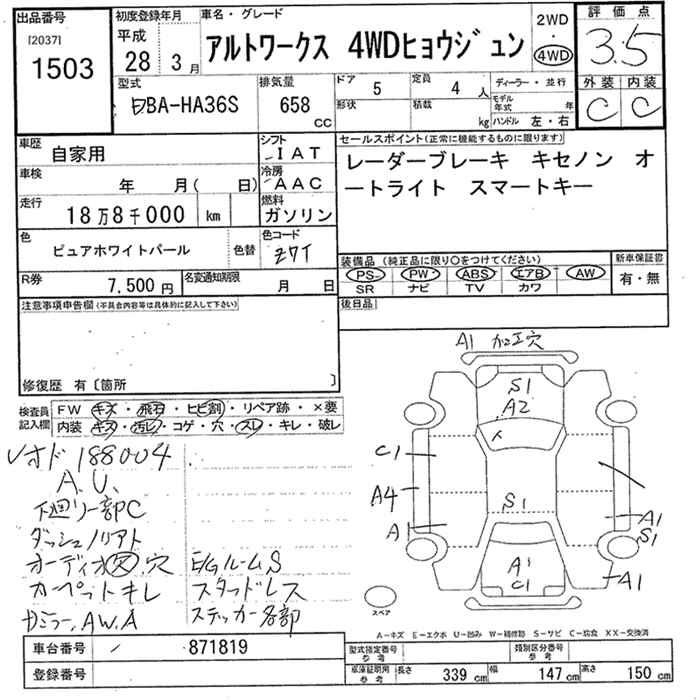 出品番号
[2037]
1503
初度登録年月
平成
28年 3月
車名・グレード
アルトワークス 4WDヒョウジュン
2WD
・
4WD
評価点
3.5
外装 内装
C C
型式
DBA-HA36S
排気量
658 cc
ドア 5
定員 4 人
形状
積載 kg
ディーラー・並行
モデル年式 年
ハンドル 左・右
車歴 自家用
シフト IAT
車検 年 月( 日)
冷房 AAC
走行 18万8千000 km
燃料 ガソリン
色 ピュアホワイトパール 色替
色コード Z7T
R券 7,500円
名変通知期限 月 日
セールスポイント(正常に機能するものに限ります)
レーダーブレーキ キセノン オ
ートライト スマートキー
装備品(純正品に限り○をつけてください)
PS PW ABS エアB AW
SR ナビ TV カワ
新車保証書
有・無
後日品
注意事項申告欄(不具合内容等は具体的に記入して下さい)
修復歴 有〔箇所 〕
検査員記入欄
FW キズ・飛石・ヒビ割・リペア跡・×要
内装 キズ・汚レ・コゲ・穴・スレ・キレ・破レ
オド188004
A.U.
下廻リ一部C
ダッシュノリアト
オーディオ欠 穴
カーペットキレ
ガミラー,AW.A
E/GルームS
スタッドレス
ステッカー各部
A1 加工穴
S1
A2
C1
A4
A1
S1
A1
S1
A1
C1
A1
スペア
A-キズ E-エクボ U-凹み W-補修跡 S-サビ C-腐食 XX-交換済
車台番号 871819
登録番号
型式指定番号 参考
類別区分番号 参考
車庫証明用 参考 長さ 339 cm 幅 147 cm 高さ 150 cm